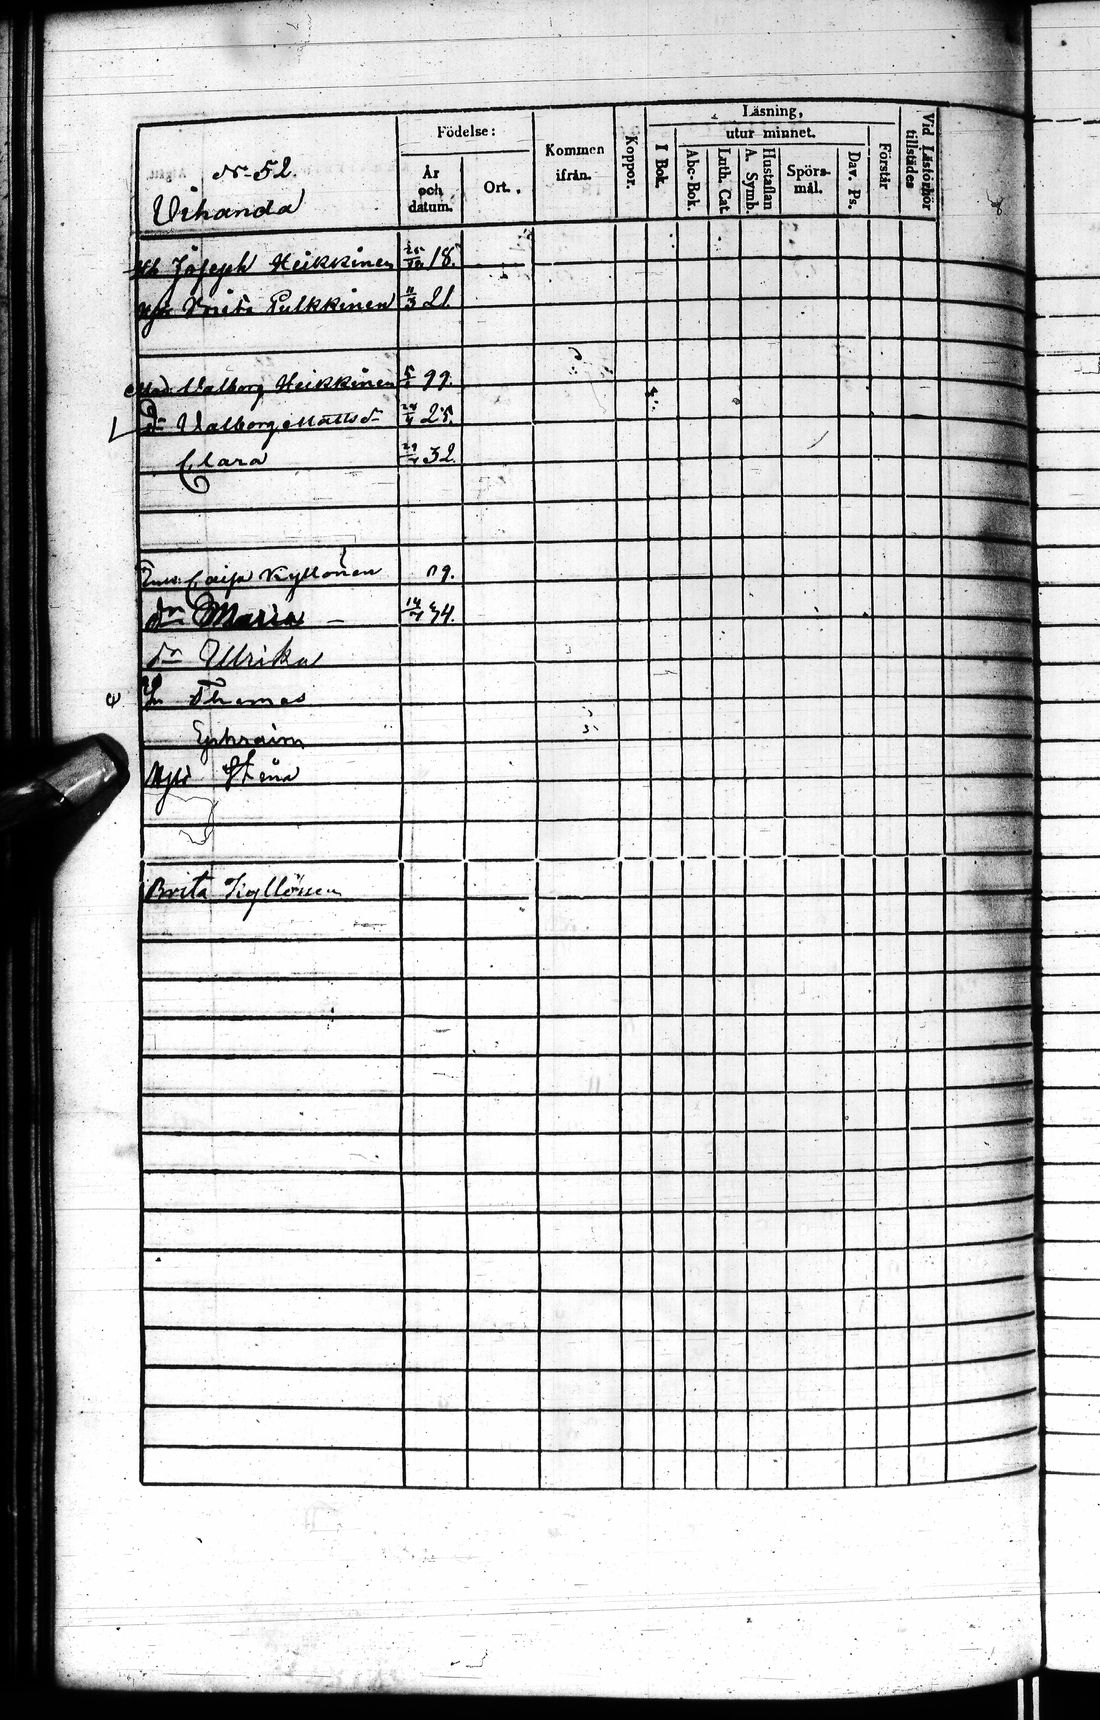 N 52
Vihanda
Födelse:
År och datum.
Ort.
Kommen ifrån.
Koppor.
Läsning,
I Bok.
utur minnet.
Abc-Bok.
Luth. Cat.
Hustaflan A. Symb.
Spörs-mål.
Dav. Ps.
Förstår
Vid Läsförhör tillstädes
Joseph Heikkinen 18.
Brita Pulkkinen 11/3 21.
Valborg Heikkinen 99.
Valborg Mattsdr 25.
Clara 32.
Caisa Kyllönen 09.
dr Maria 34.
dr Ulrika
Thomas
Ephraim
Stina
Brita Kyllönen